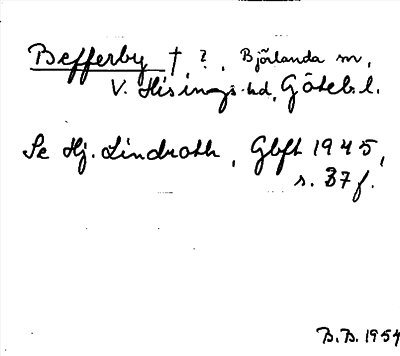 Befferby † ?, Björlanda sn,
V. Hisings hd, Göteb. l.
Se Hj. Lindroth, Gbft 1945,
s. 37 f.
B.B. 1954